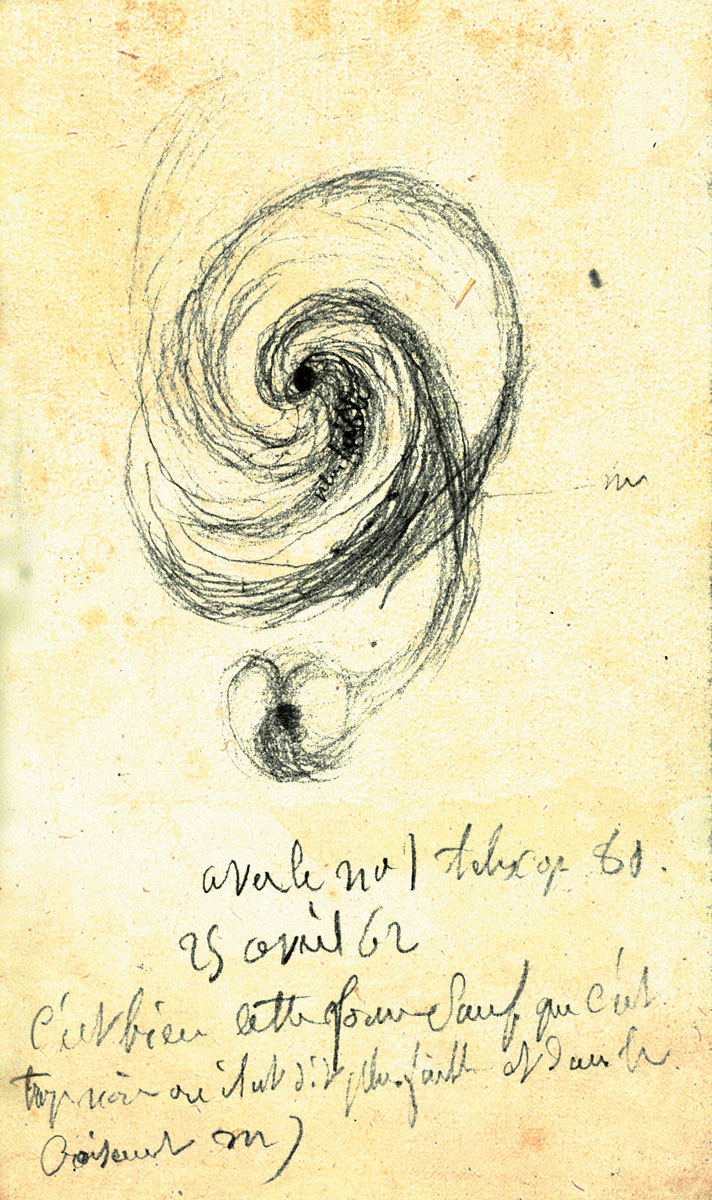 plus faible
m
avec le no 1 telescop 80.
25 avril 62
C'est bien cette forme sauf que c'est
trop noir où il est dit plus faible et dans le
croisement m)